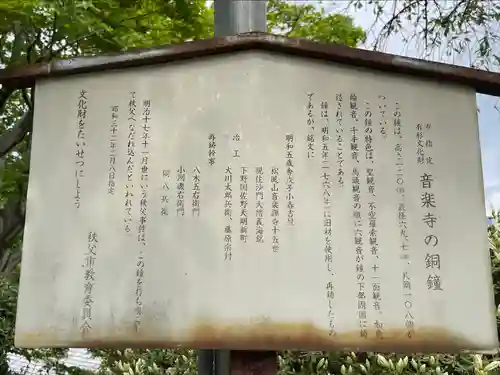 市指定
有形文化財
音楽寺の銅鐘
この鐘は、高さ一二〇㎝、直径六九、七㎝、乳頭一〇八個が
ついている。
この鐘の特色は、聖観音、不空羂索観音、十一面観音、如意
輪観音、千手観音、馬頭観音の順に六観音が鐘の下部周囲に鋳
造されていることである。
鐘は、明和五年(一七六八年)に旧材を使用し、再鋳したもの
であるが、銘文に
明和五歳春次戊子小春吉旦
松風山音楽禅寺十五世
現住沙門大陰義海銘
下野国佐野天明新町
冶工
大川太郎兵衛、藤原宗封
再鋳幹事
八木五右衛門
小川磯右衛門
同八兵衛
明治十七年十一月世にいう秩父事件は、この鐘を打ち鳴らし
て秩父へなだれ込んだといわれている。
昭和三十二年二月八日指定
文化財をたいせつにしよう
秩父市教育委員会